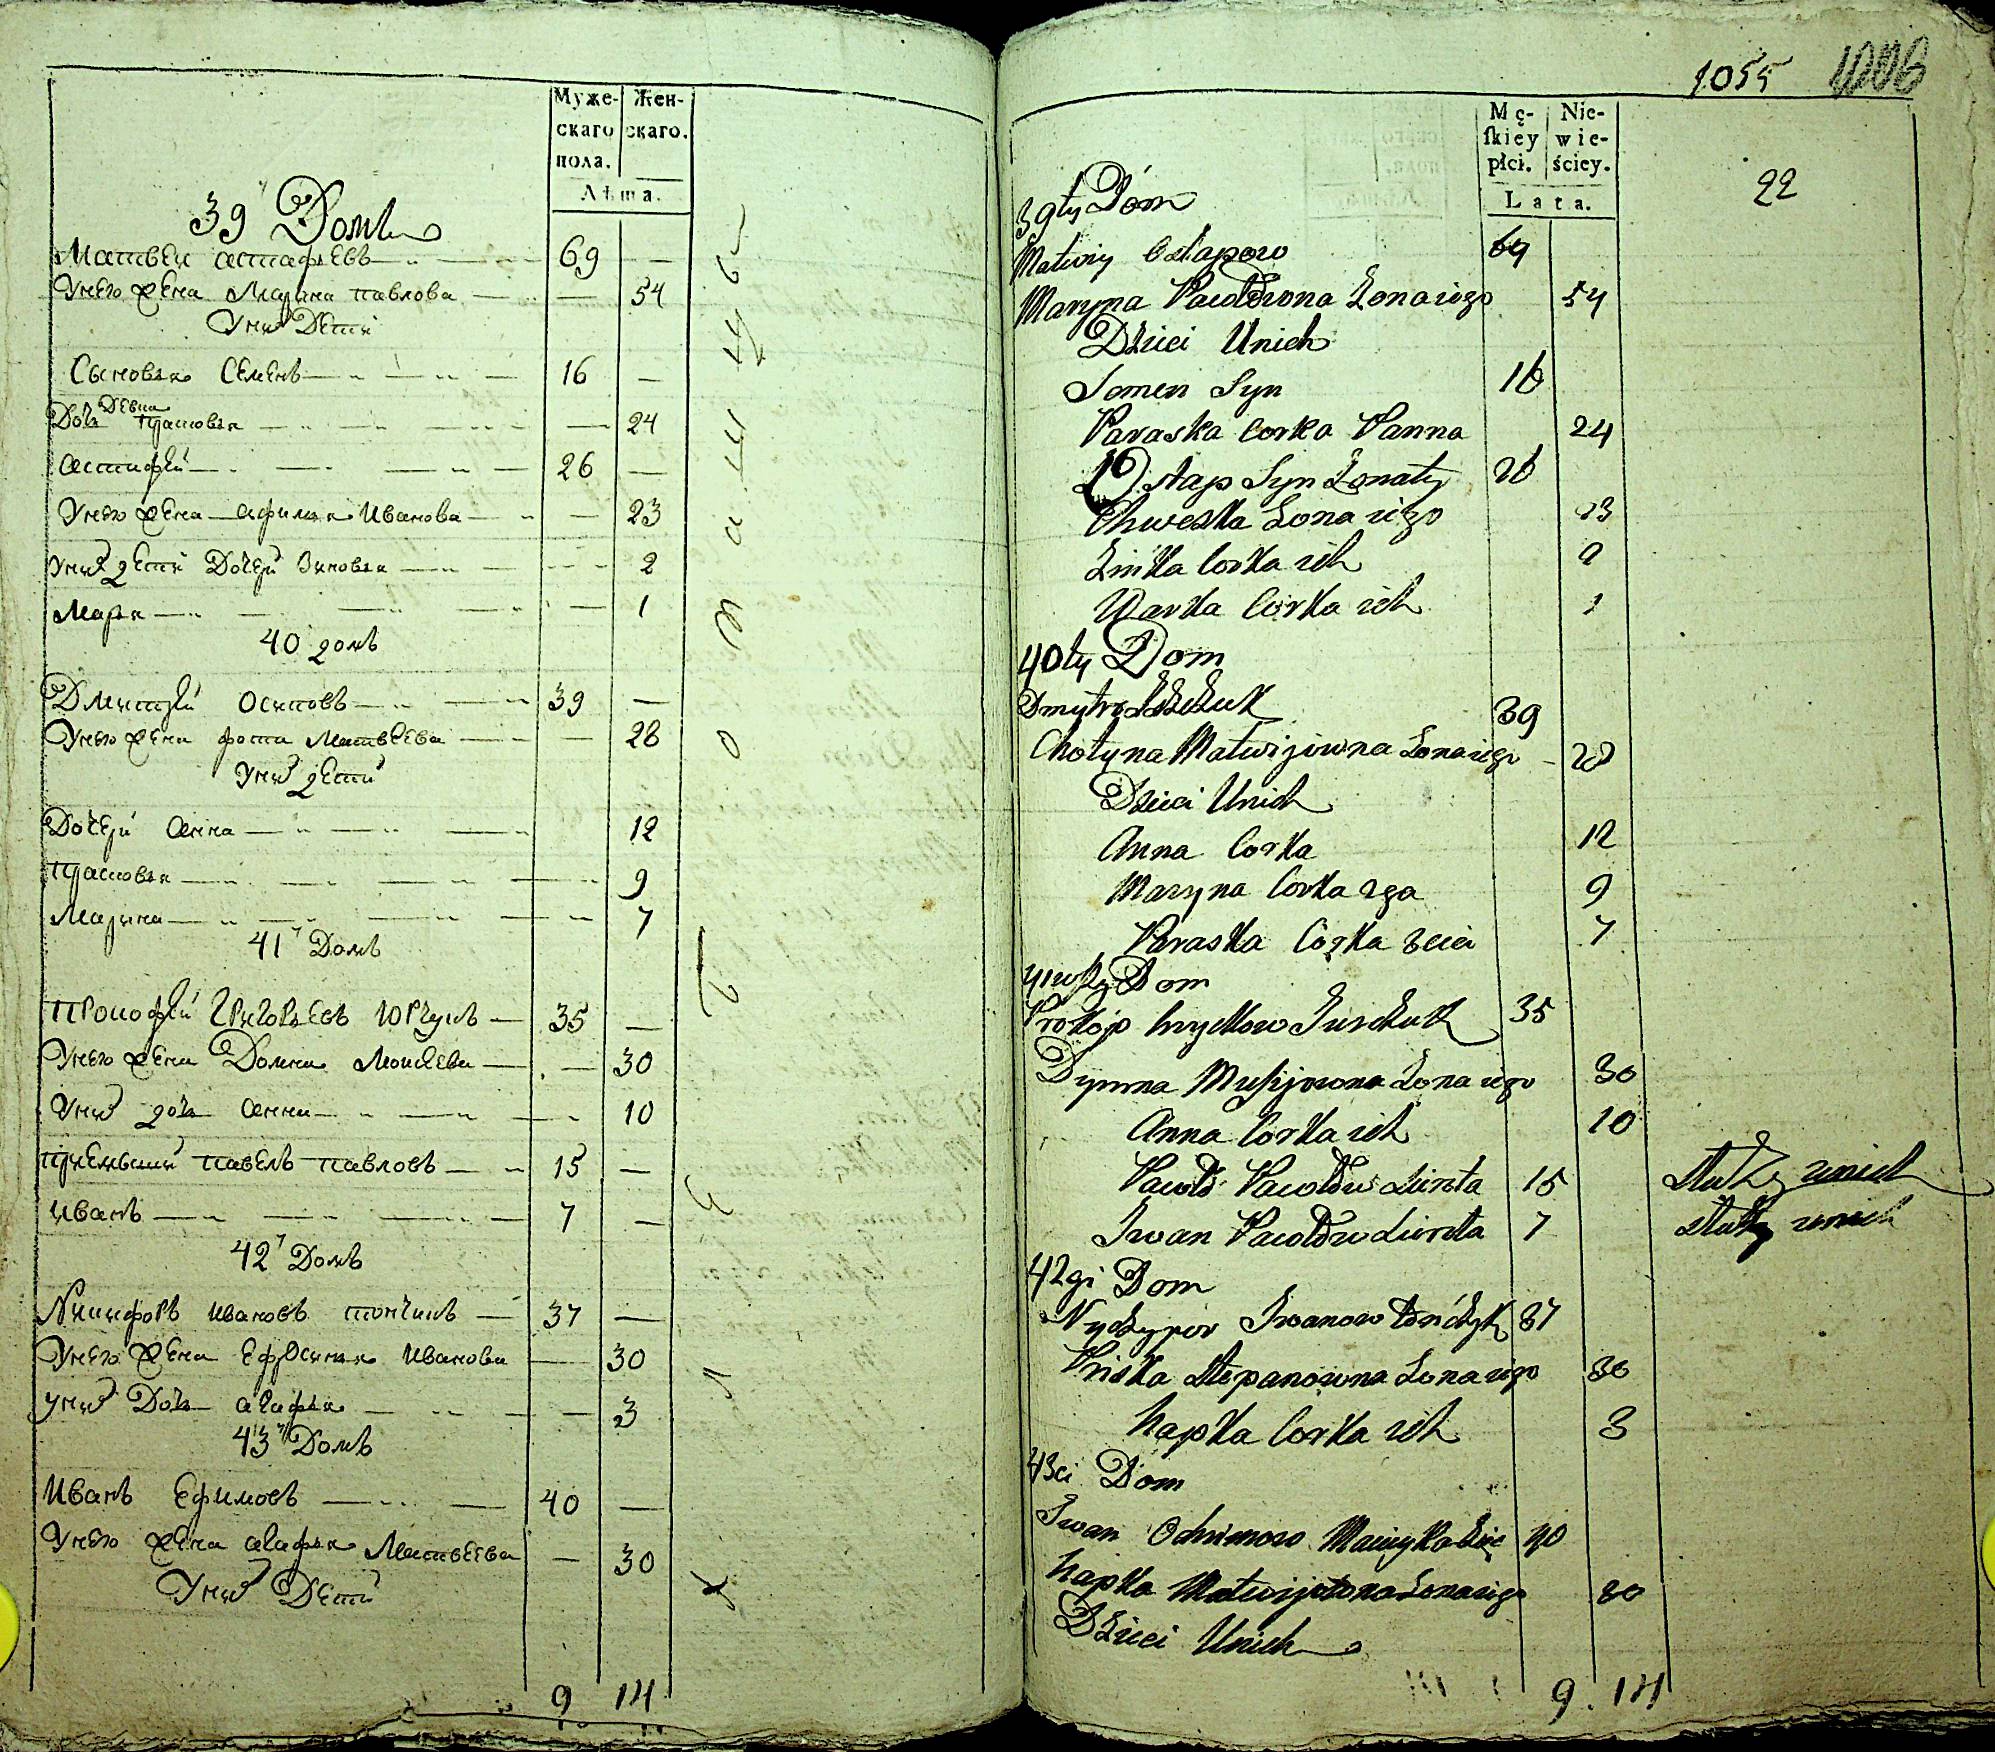 Муже-
скаго
пола.
Жен-
скаго.
Лѣта.
39 Домъ
Матвеи астафьевъ 69
Унего жена Марина павлова 54
Унихъ Дети
Сыновья Семенъ 16
Девка
Дочь Прасковья 24
астафей 26
Унего жена афимья Иванова 23
Унихъ дети Дочери Зиновья 2
Марья 1
40 домъ
Дмитрей Осиповъ 39
Унего жена фотина Матвеева 28
Унихъ дети
Дочери Анна 12
Прасковья 9
Марина 7
41 Домъ
Прокофей Григорьевъ Юрчукъ 35
Унего жена Домна Мокиева 30
Унихъ дочь Анна 10
Приемыши Павелъ Павловъ 15
Иванъ 7
42 Домъ
Никифоръ Ивановъ 37
Унего жена Ефросинья Иванова 30
Унихъ Дочь агафья 3
43 Домъ
Иванъ Ефимовъ 40
Унего жена агафья Матвеева 30
Унихъ Дети
9 14
1055
22
Mę-
ſkiey
płci.
Nie-
wie-
ściey.
Lata.
39ty Dóm
Matwiy Ostapow 69
Maryna Pawołowna Żona iego 54
Dzieci Unich
Semen Syn 16
Paraska Corka Panna 24
Ostap Syn Żonaty 26
Chweska Żona iego 23
Zinka Corka ich 2
Marka Corka ich 1
40ty Dom
Dmytro 39
Chotyna Matwijowna Żona iego 28
Dzieci Unich
Anna Corka 12
Maryna Corka 2ga 9
Paraska Corka 3cia 7
41wszy Dom
Prokop hryckow Jurczuk 35
Dymna Musijowna Żona iego 30
Anna Corka ich 10
Pawoł Pawołow Sirota 15 służy unich
Iwan Pawołow Sirota 7 służy unich
42gi Dom
Nyczypor Iwanow 37
Priska Stepanowna Żona iego 30
hapka Corka ich 3
43ci Dom
Iwan Ochrimow 40
hapka Matwijowna Żona iego 30
Dzieci Unich
9. 14